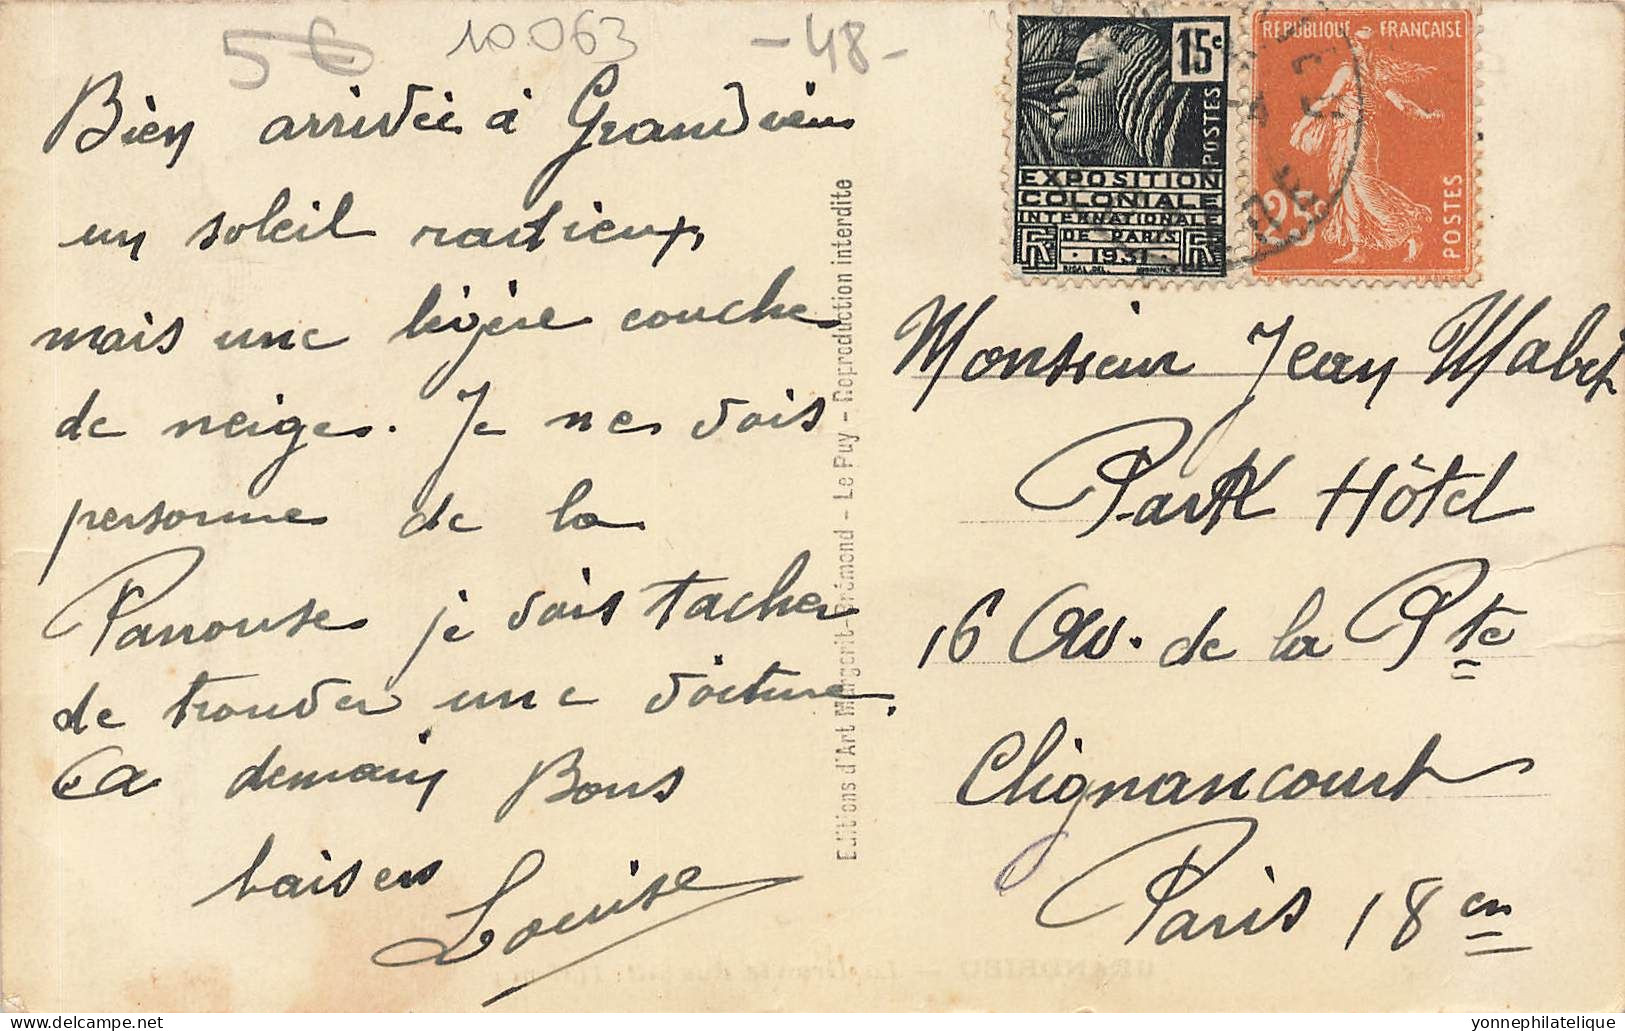 5€ 10063 -48-
Bien arrivée à Grandrieu
un soleil radieux
mais une légère couche
de neige. Je ne vois
personne de la
Panouse je vais tacher
de trouver une voiture.
a demain Bons
baisers
Louise
Editions d'Art Margerit-Brémond - Le Puy - Reproduction interdite
15c
POSTES
EXPOSITION
COLONIALE
INTERNATIONALE
DE PARIS
1931
REPUBLIQUE FRANÇAISE
25c
POSTES
Monsieur Jean Malet
Park Hôtel
16 Av. de la Pte
Clignancourt
Paris 18 en
yonnephilatelique.com